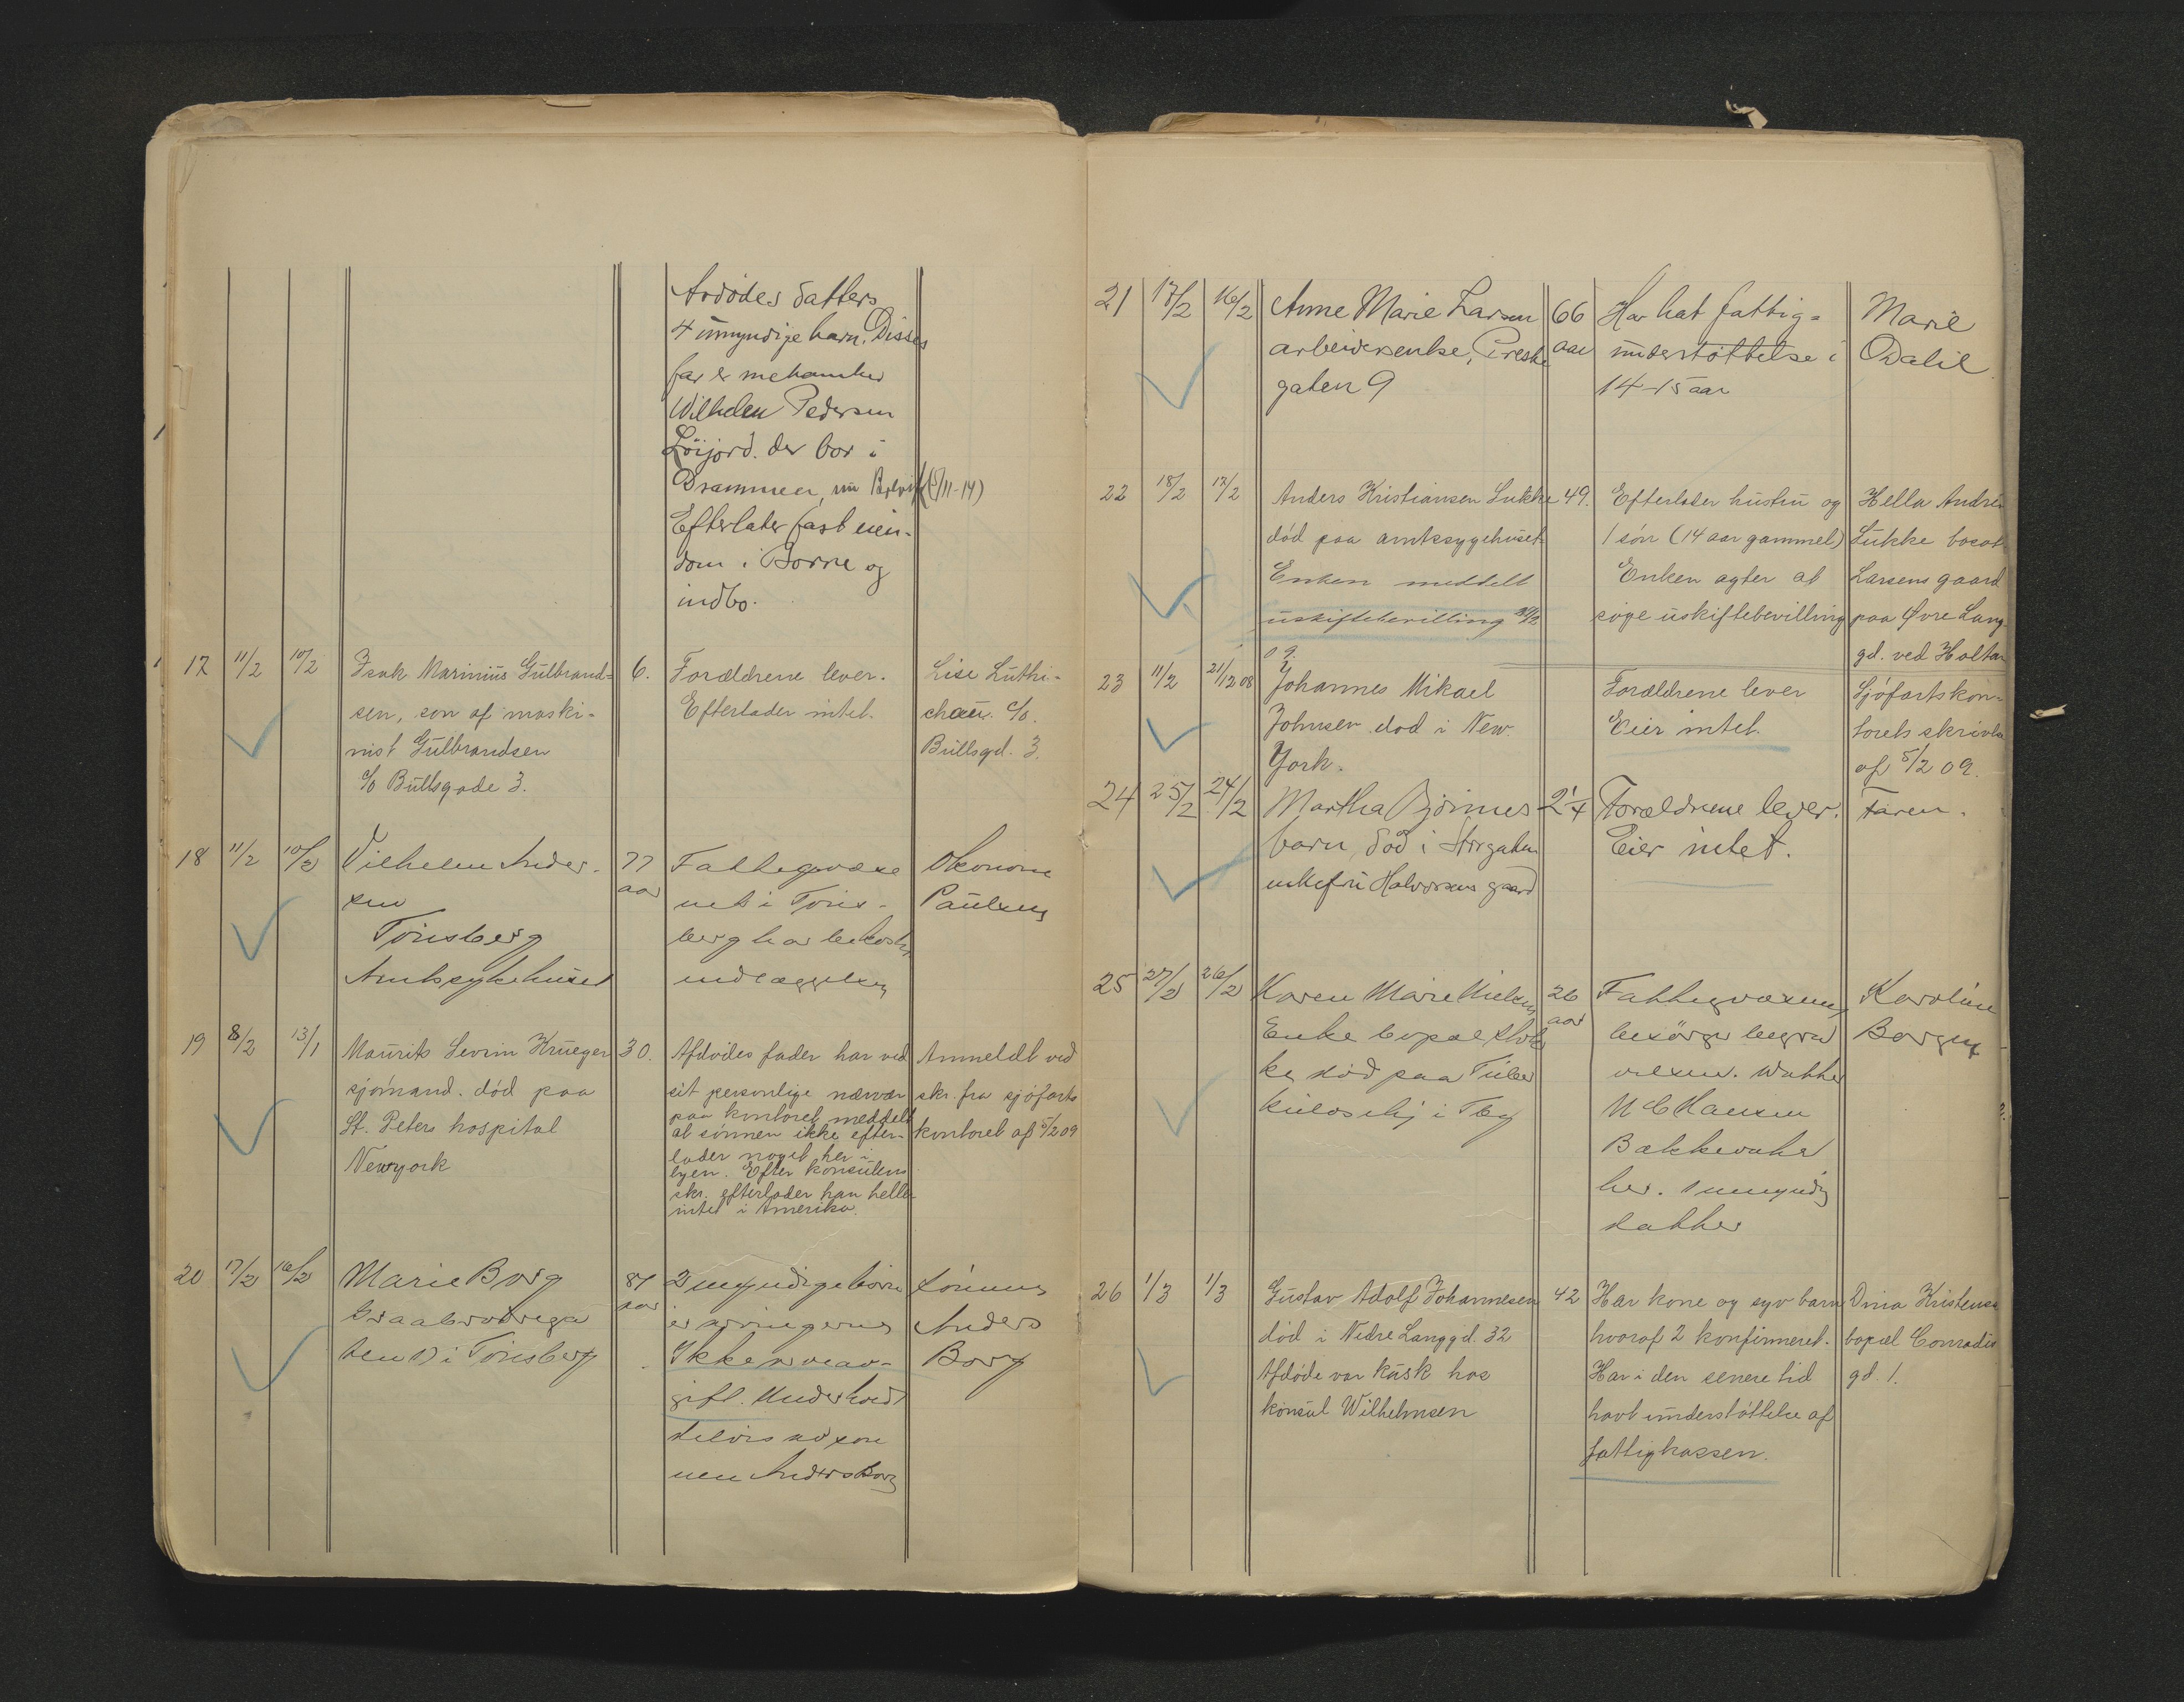 Avdødes datters
4 umyndige barn. Disses
far er mekaniker
Wilhelm Pedersen
Løijord. der bor i
Drammen, nu (5/11-14)
Efterlater fast eien-
dom i Borre og
indbo.
17 11/2 10/2 Isak Marinius Gulbrand- 6. Forældrene lever. Lise Luthi-
sen, søn af maski- Efterlader intet. chau. c/o.
nist Gulbrandsen Bullsgd. 3.
c/o Bullsgade 3.
18 11/2 10/2 Vilhelm Ander- 77 Fattigvæse Økonom
sen aar net i Tøns- Paulsen
Tønsberg berg har bekostet
Amtssykehuset indlæggelsen
19 8/2 13/1 Maurits Severin Krueger 30. Afdødes fader har ved Anmeldt ved
sjømand. død paa sit personlige nærvær skr. fra sjøfarts
St. Peters hospital paa kontoret meddelt kontoret af 5/2 09
Newyork at sønnen ikke efter-
lader noget her i
byen. Efter konsulens
skr. efterlader han heller
intet i Amerika.
20 17/2 16/2 Marie Borg 87 2 myndige børn Sønnen
Graabrødrega aar er arvingerne Anders
ten 17 i Tønsberg Ikke arveav- Borg
gift. Underholdt
delvis av søn
nen Anders Borg
21 17/2 16/2 Anne Marie Larsen 66 Har hat fattig- Marie
arbeiderenke, Preste aar understøttelse i Odalie
gaten 9 14-15 aar
22 18/2 17/2 Anders Kristiansen Lukke 49. Efterlader hustru og Hella Andrea
død paa amtssygehuset 1 søn (14 aar gammel) Lukke
Enken meddelt Enken agter at Larsens gaard
uskiftebevilling søge uskiftebevilling paa Øvre Lang
09. gd. ved Holtan
23 11/2 21/12 08 Johannes Mikael Forældrene lever Sjøfartskon-
Johnsen død i New Eier intet. torets skrivelse
York. af 5/2 09.
24 25/2 24/2 Martha Bjønnes 2 1/4 Forældrene lever. Faren.
barn, død i Storgaten Eier intet.
enkefru Halvorsens gaard
25 27/2 26/2 Karen Marie Nielsen 26 Fattigvæsenet Karoline
Enke bopæl aar besørger begra Borgen
ke død paa Tuber velsen. Datter
kuloschj i Tbg N C Hansen
Bakkevake
her. 1 umyndig
datter
26 1/3 1/3 Gustav Adolf Johannesen 42 Har kone og syv barn Dina Kristensen
død i Nedre Langgd. 32 hvoraf 2 konfirmeret. bopæl Conradis
Afdøde var kusk hos Har i den senere tid gd. 1.
konsul Wilhelmsen havt understøttelse af
fattigkassen.